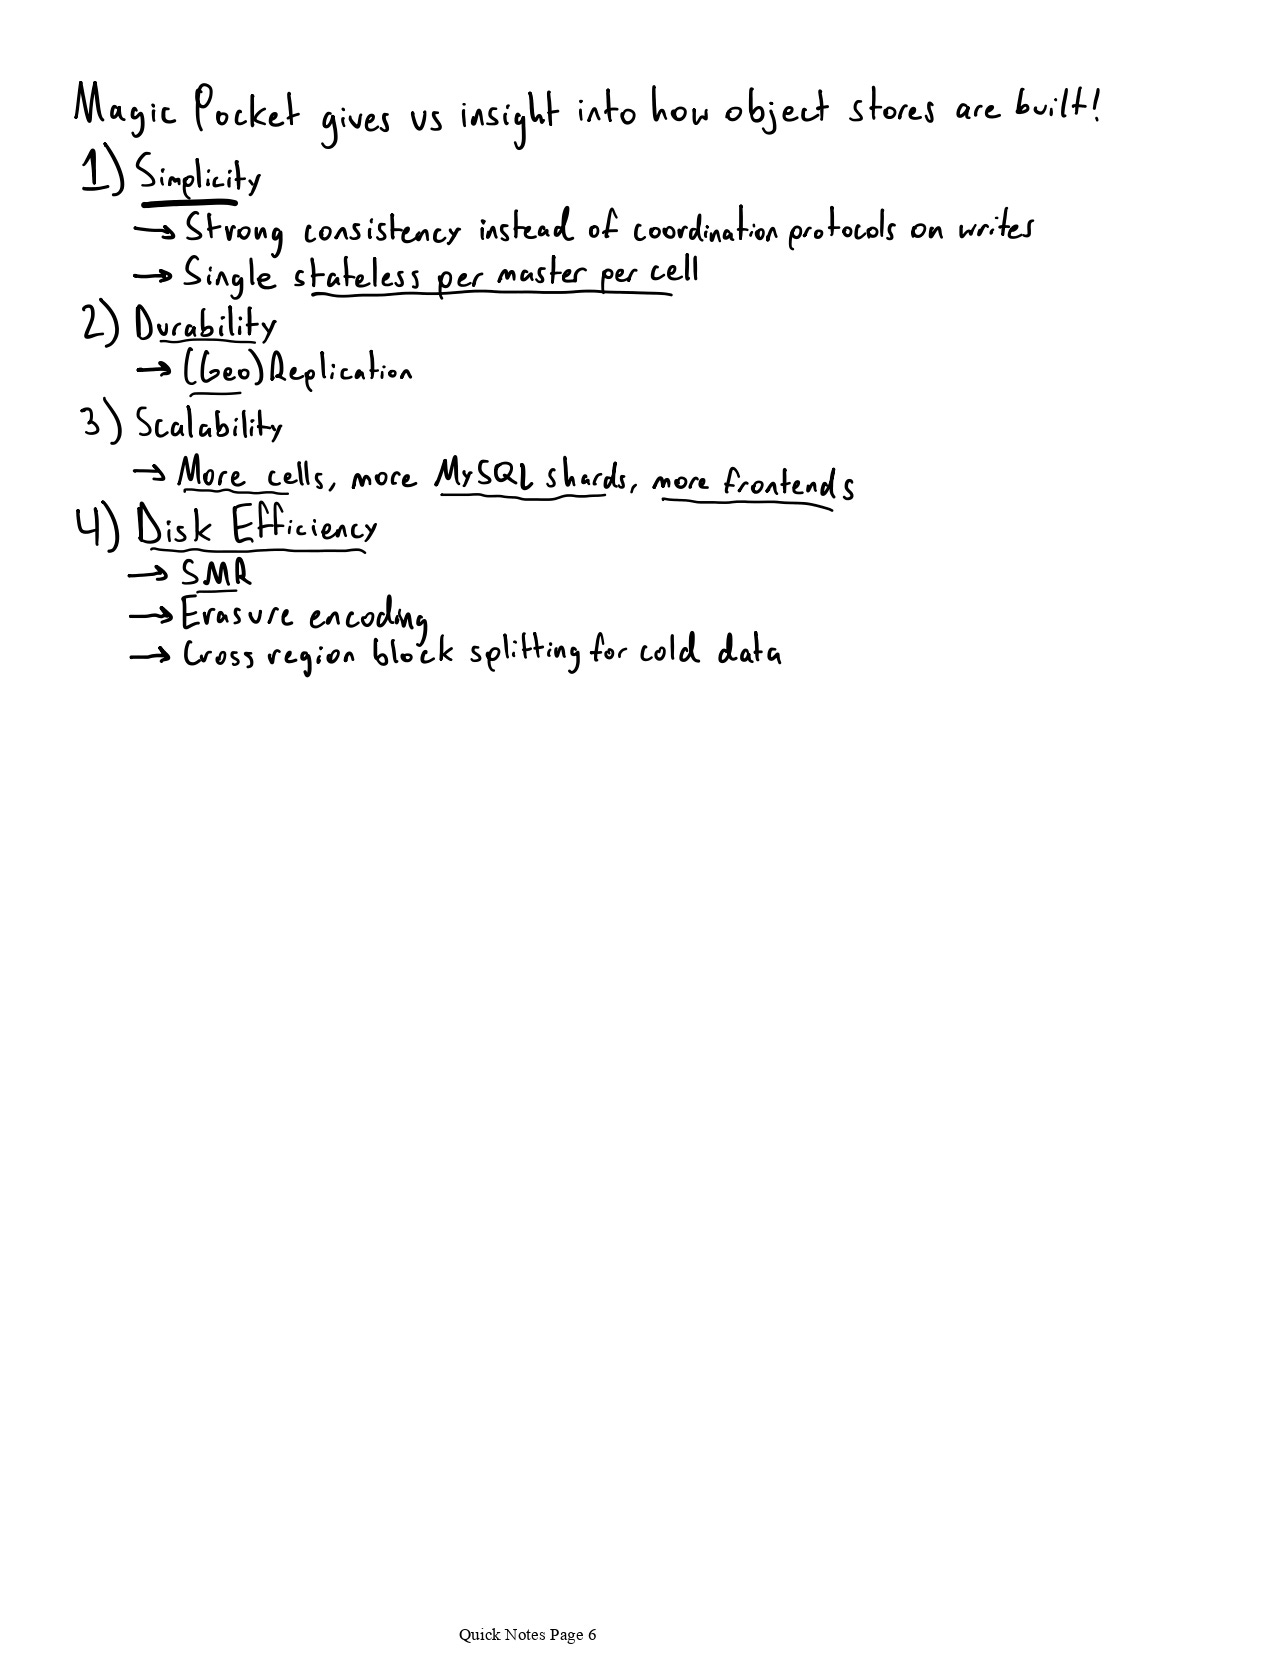 Magic Pocket gives us insight into how object stores are built!
1) Simplicity
→ Strong consistency instead of coordination protocols on writes
→ Single stateless per master per cell
2) Durability
→ (Geo)Replication
3) Scalability
→ More cells, more MySQL shards, more frontends
4) Disk Efficiency
→ SMR
→ Erasure encoding
→ Cross region block splitting for cold data
Quick Notes Page 6